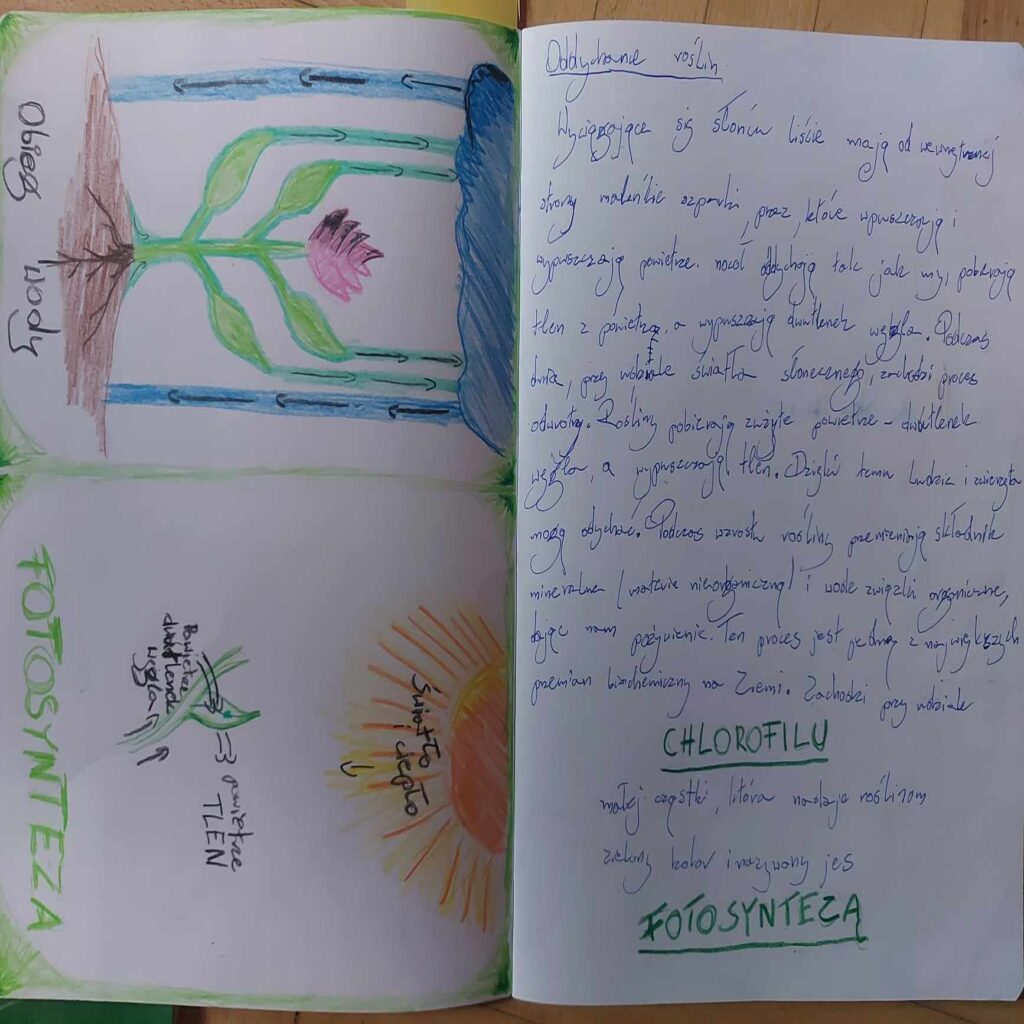 Obieg wody
FOTOSYNTEZA
Światło
i ciepło
powietrze
TLEN
Powietrze
dwutlenek
węgla
Oddychanie roślin
Wyciągające się słońcu liście mają od wewnętrznej
strony maleńkie szparki, przez, które wpuszczają i
wypuszczają powietrze. nocą oddychają tak jak my, pobierają
tlen z powietrza, a wypuszczają dwutlenek węgla. Podczas
dnia, przy udziale światła słonecznego, zachodzi proces
odwrotny. Rośliny pobierają zużyte powietrze - dwutlenek
węgla, a wypuszczają tlen. Dzięki temu ludzie i zwierzęta
mogą odychać. Podczas wzrostu rośliny przemieniają składniki
mineralne (materie nieorganiczną) i wodę związki organiczne,
dając nam pożywienie. Ten proces jest jedną z największych
przemian biochemiczny na Ziemi. Zachodzi przy udziale
CHLOROFILU
małej cząstki, która nadaje roślinom
zielony kolor i nazywany jes
FOTOSYNTEZĄ